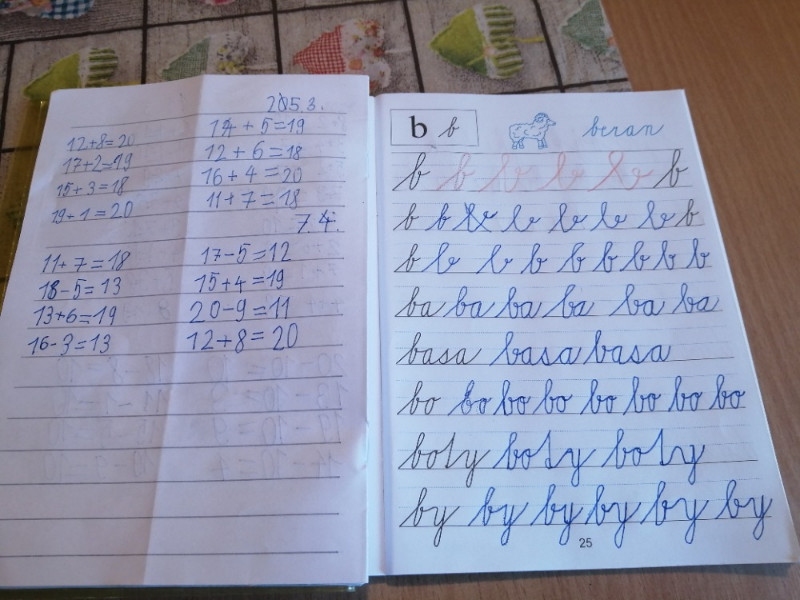 205.3.
12+8=20 14+5=19
17+2=19 12+6=18
15+3=18 16+4=20
19+1=20 11+7=18
7.4.
11+7=18 17-5=12
18-5=13 15+4=19
13+6=19 20-9=11
16-3=13 12+8=20
b b beran
b b b b b b
b b b b b b b b
b b b b b b b b
ba ba ba ba ba ba
basa basa basa
bo bo bo bo bo bo bo bo
boty boty boty
by by by by by by
25